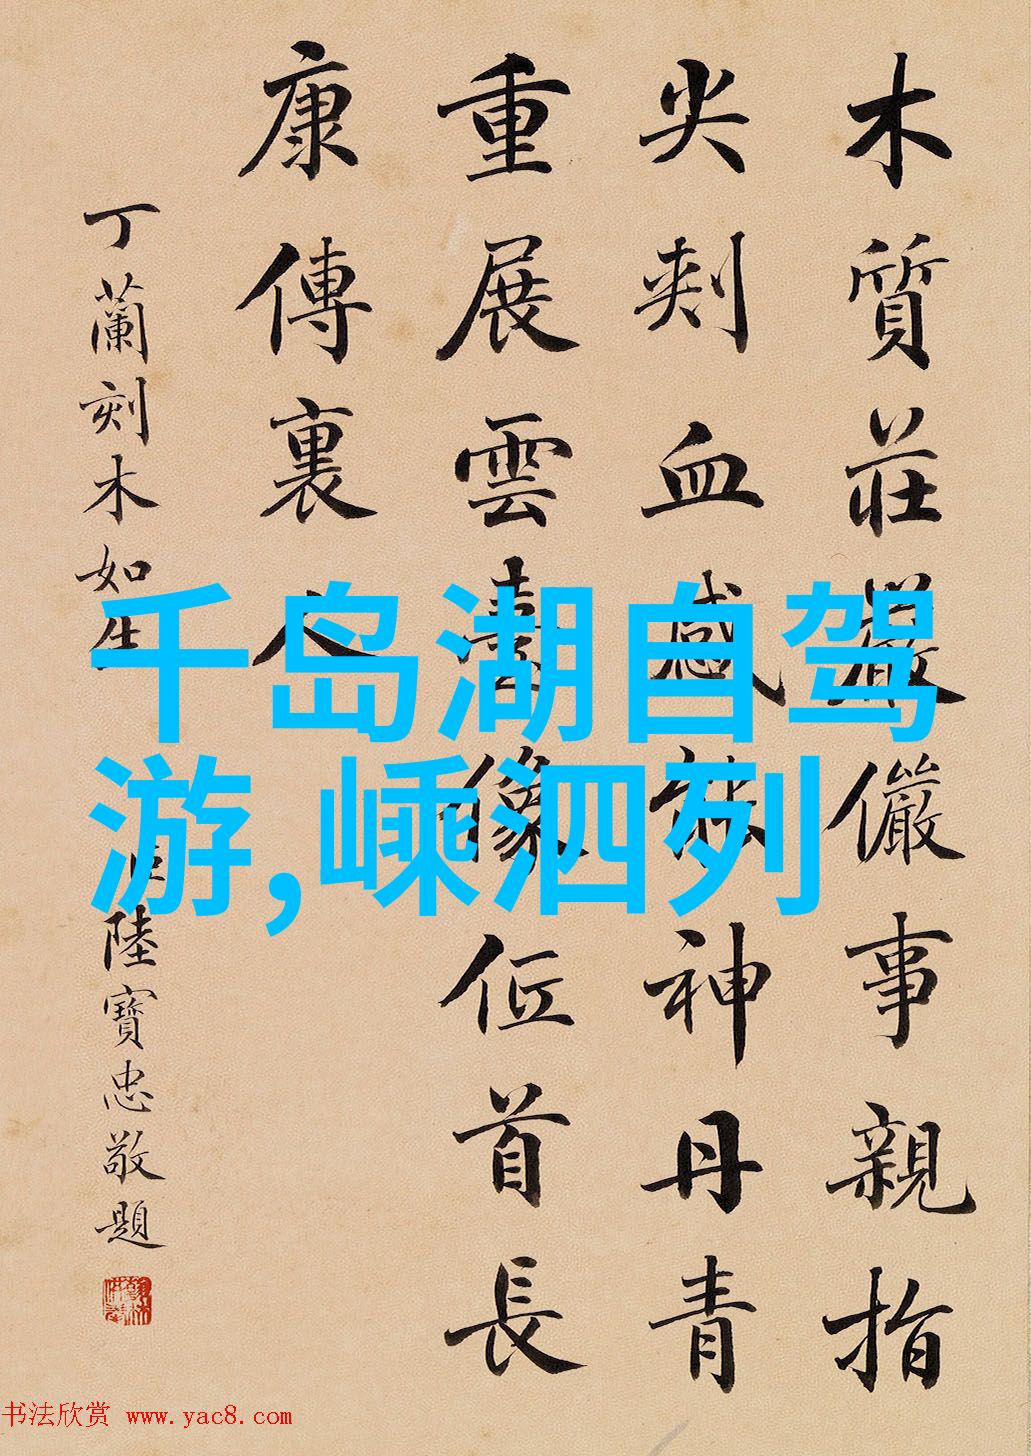 千岛湖自驾
游,嵊泗列
木質莊嚴儼事親指
尖刾血感神丹青
重展雲臺像首長
康傳裏人
丁蘭刻木如生 臣陸寶忠敬題
书法欣赏 www.yac8.com